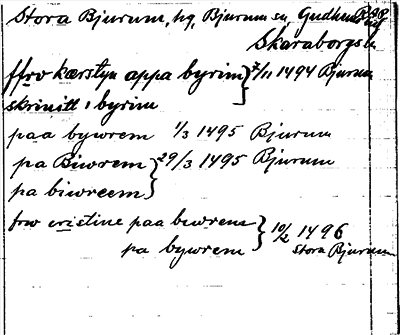 Stora Bjurum, hg, Bjurum sn, Gudhems
Skaraborgs
ffrv kærstyn appa byrim } 7/11 1494 Bjurum
skriuitt i byrim
paa bywrem 1/3 1495 Bjurum
pa Biwrem } 29/3 1495 Bjurum
pa biwreem
frw cristine paa bwrem } 10/2 1496
pa bywrem Stora Bjurum